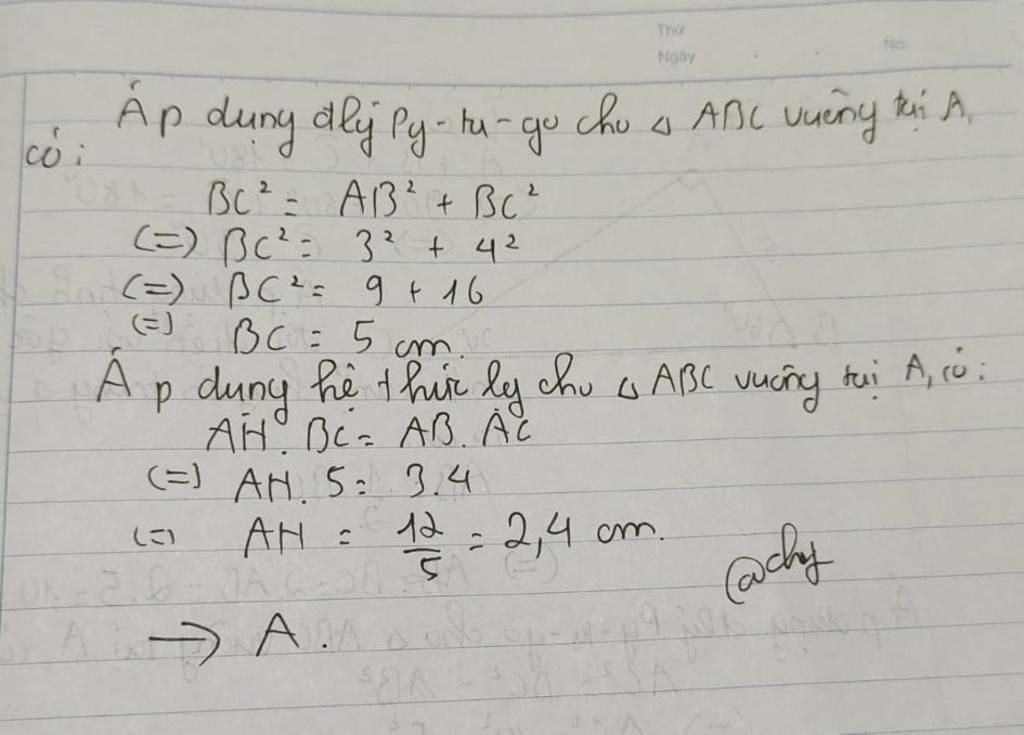 Thứ
Ngày
No.
Áp dụng đlý Py-ta-go cho △ ABC vuông tại A,
có:
BC² = AB² + BC²
(=) BC² = 3² + 4²
(=) BC² = 9 + 16
(=) BC = 5 cm.
Áp dụng hệ thức lg cho △ ABC vuông tại A, có:
AH. BC = AB. AC
(=) AH. 5 = 3.4
(=) AH = 12/5 = 2,4 cm.
@chy
→ A.